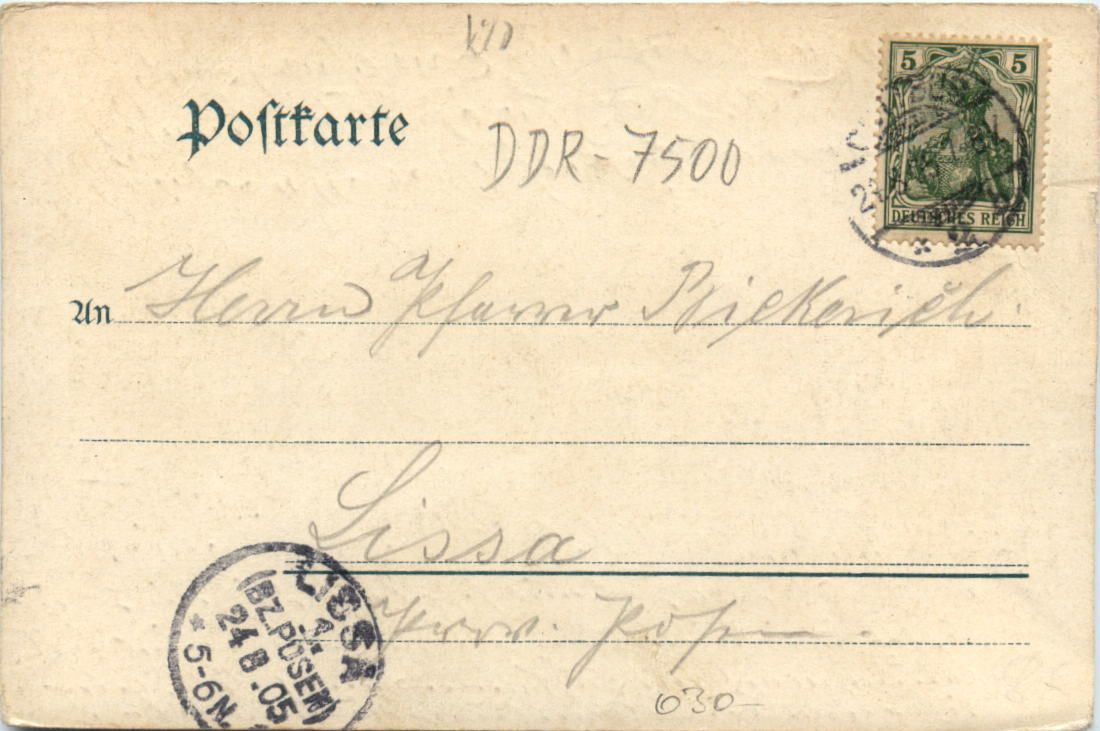 Postkarte
DDR-7500
5 5
DEUTSCHES REICH
An Herrn Pfarrer Bickerich.
Lissa
Prov. Posen.
LISSA
(BZ. POSEN)
24 8.05
* 5-6N.
030-